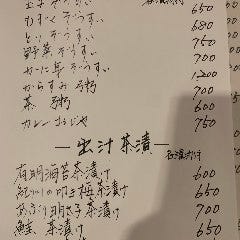 玉子ぞうすい 650
もずくぞうすい 680
とりぞうすい 750
野菜ぞうすい 700
かに専ぞうすい 1,200
からすみ粥 700
茶粥 600
カレーおじや 750
―出汁茶漬―
有明海苔茶漬け 600
紀州の叩き梅茶漬け 650
あぶり明太子茶漬け 700
鮭茶漬け 650